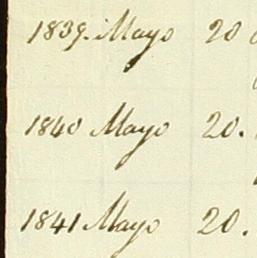 1839. Mayo 20
1840 Mayo 20.
1841 Mayo 20.